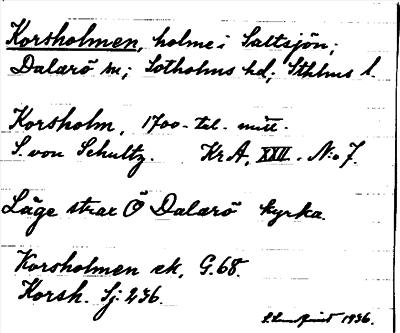 Korsholmen, holme i Saltsjön;
Dalarö sn; Sotholms hd; Sthlms l.
Korsholm, 1700-tal. mitt.
S. von Schultz. KrA, XXII. No 7.
Läge strax Ö Dalarö kyrka.
Korsholmen ek, G.68.
Korsh. Sj: 236.
1936.